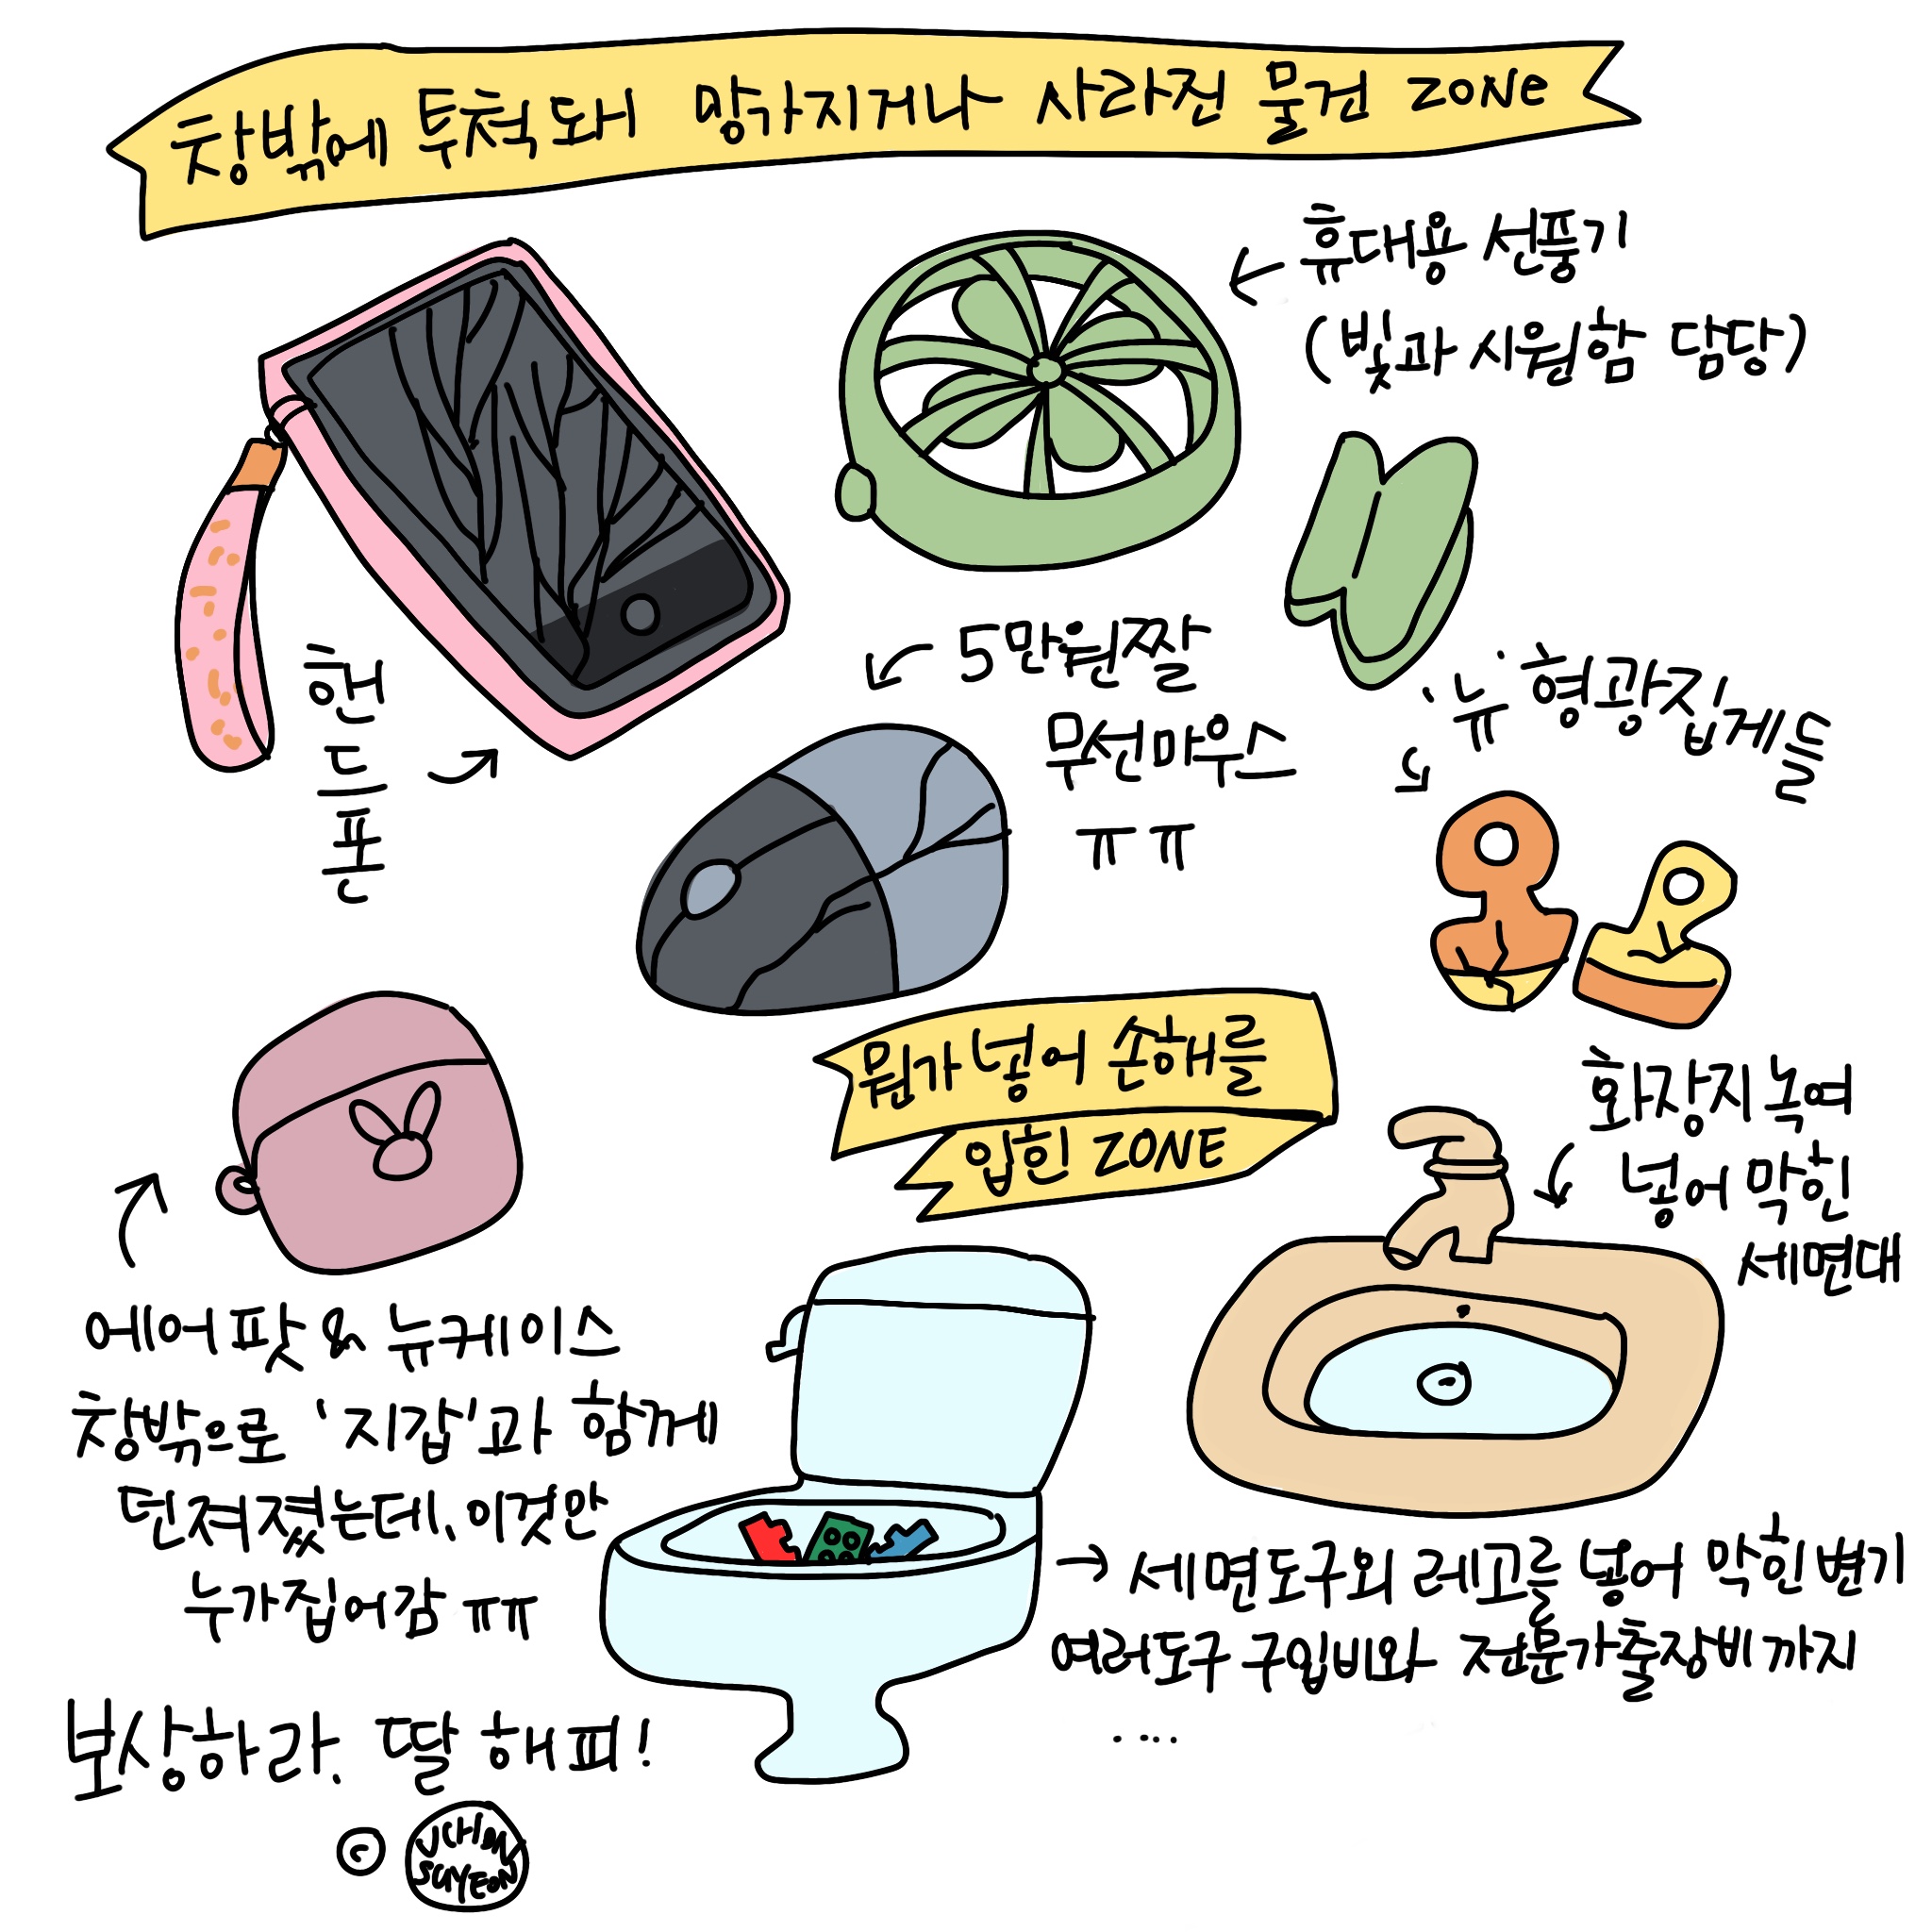 창밖에 투척돼 망가지거나 사라진 물건 ZONE
휴대용 선풍기
(빛과 시원함 담당)
핸드폰
5만원짜리
무선마우스
ㅠㅠ
'뉴' 형광집게들
뭔가 넣어 손해를
입힌 ZONE
화장지 녹여
넣어 막힌
세면대
에어팟 & 뉴케이스
창밖으로 '지갑'과 함께
던져졌는데, 이것만
누가 집어감 ㅠㅠ
→ 세면도구와 레고를 넣어 막힌 변기
여러 도구 구입비와 전문가 출장비까지
....
보상하라. 딸 해피!
©